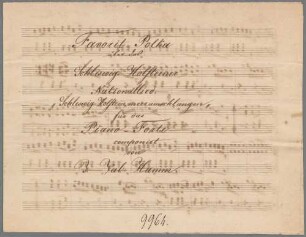 Favorit-Polka
über das
Schleswig Holsteiner
Nationallied
"Schleswig Holstein meerumschlungen"
für das
Piano-Forte
componirt
von
Val. Hamm.
9964.